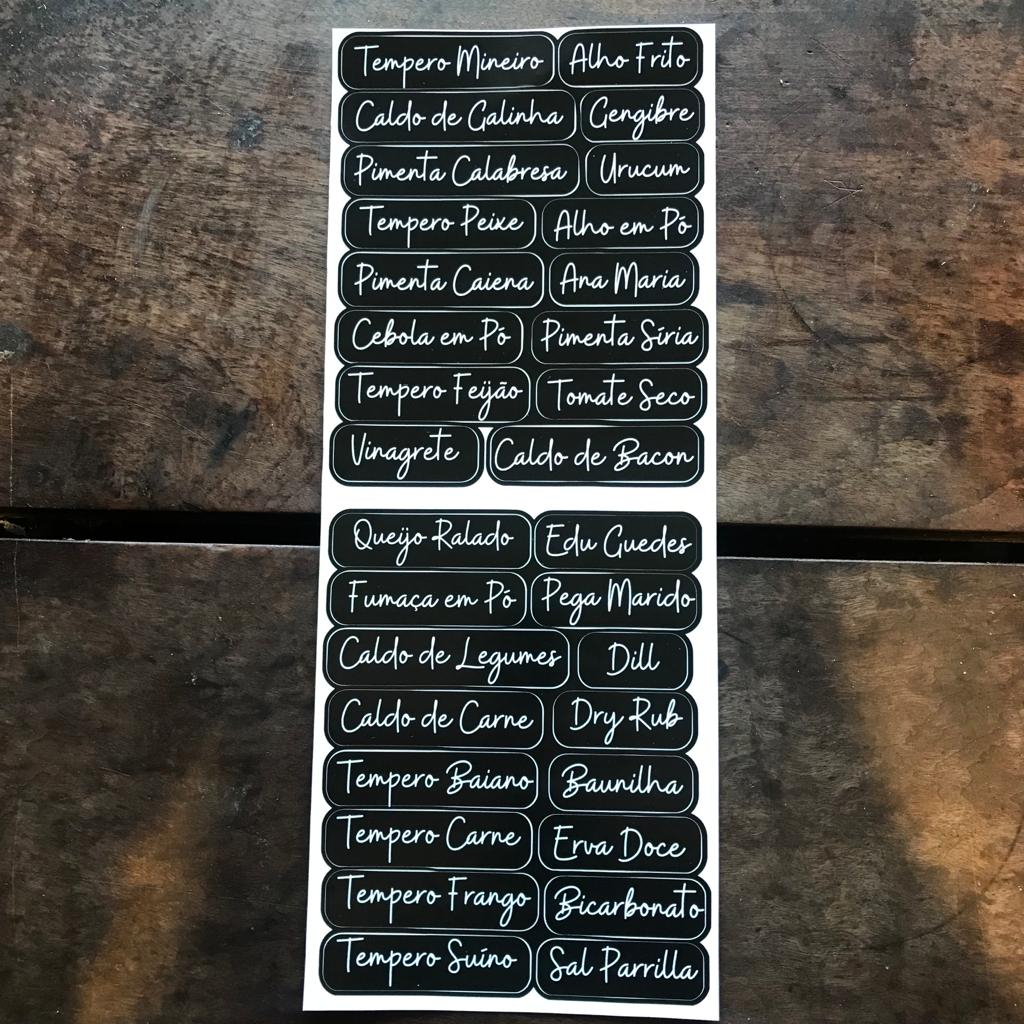 Tempero Mineiro Alho Frito
Caldo de Galinha Gengibre
Pimenta Calabresa Urucum
Tempero Peixe Alho em Pó
Pimenta Caiena Ana Maria
Cebola em Pó Pimenta Síria
Tempero Feijão Tomate Seco
Vinagrete Caldo de Bacon
Queijo Ralado Edu Guedes
Fumaça em Pó Pega Marido
Caldo de Legumes Dill
Caldo de Carne Dry Rub
Tempero Baiano Baunilha
Tempero Carne Erva Doce
Tempero Frango Bicarbonato
Tempero Suíno Sal Parrilla